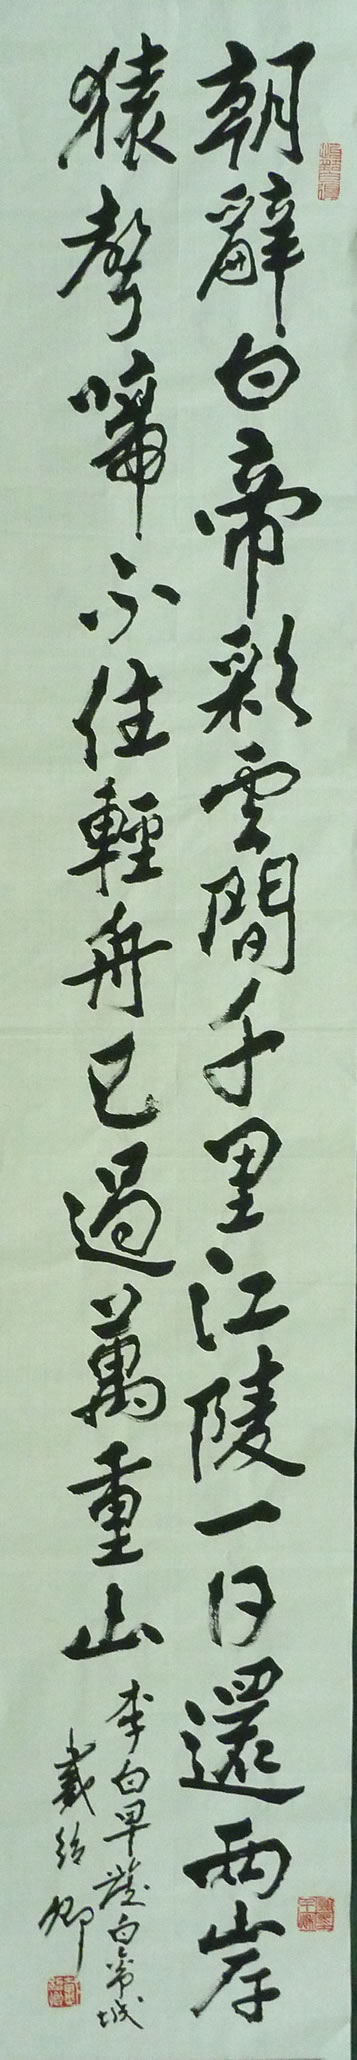 朝辭白帝彩雲間千里江陵一日還兩岸
猿聲啼不住輕舟已過萬重山
李白早發白帝城
戴紹卿